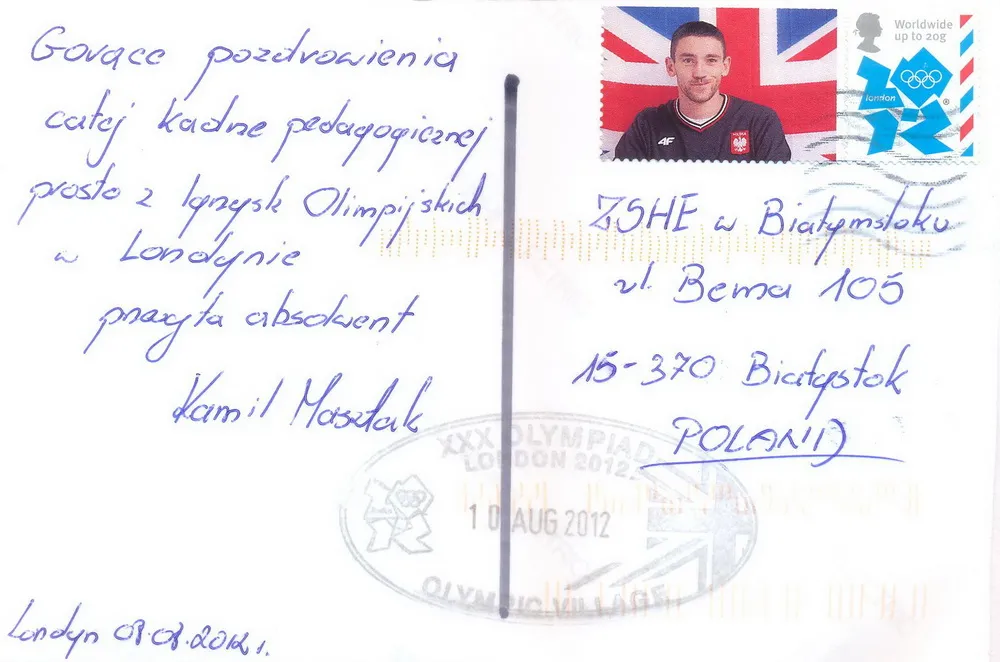 Gorące pozdrowienia
całej kadrze pedagogicznej
prosto z Igrzysk Olimpijskich
w Londynie
przesyła absolwent
Kamil Masztak
Londyn 09.08.2012 r.
Worldwide
up to 20g
london
4F
POLSKA
ZSHE w Białymstoku
ul. Bema 105
15-370 Białystok
POLAND
XXX OLYMPIAD
LONDON 2012
10 AUG 2012
OLYMPIC VILLAGE